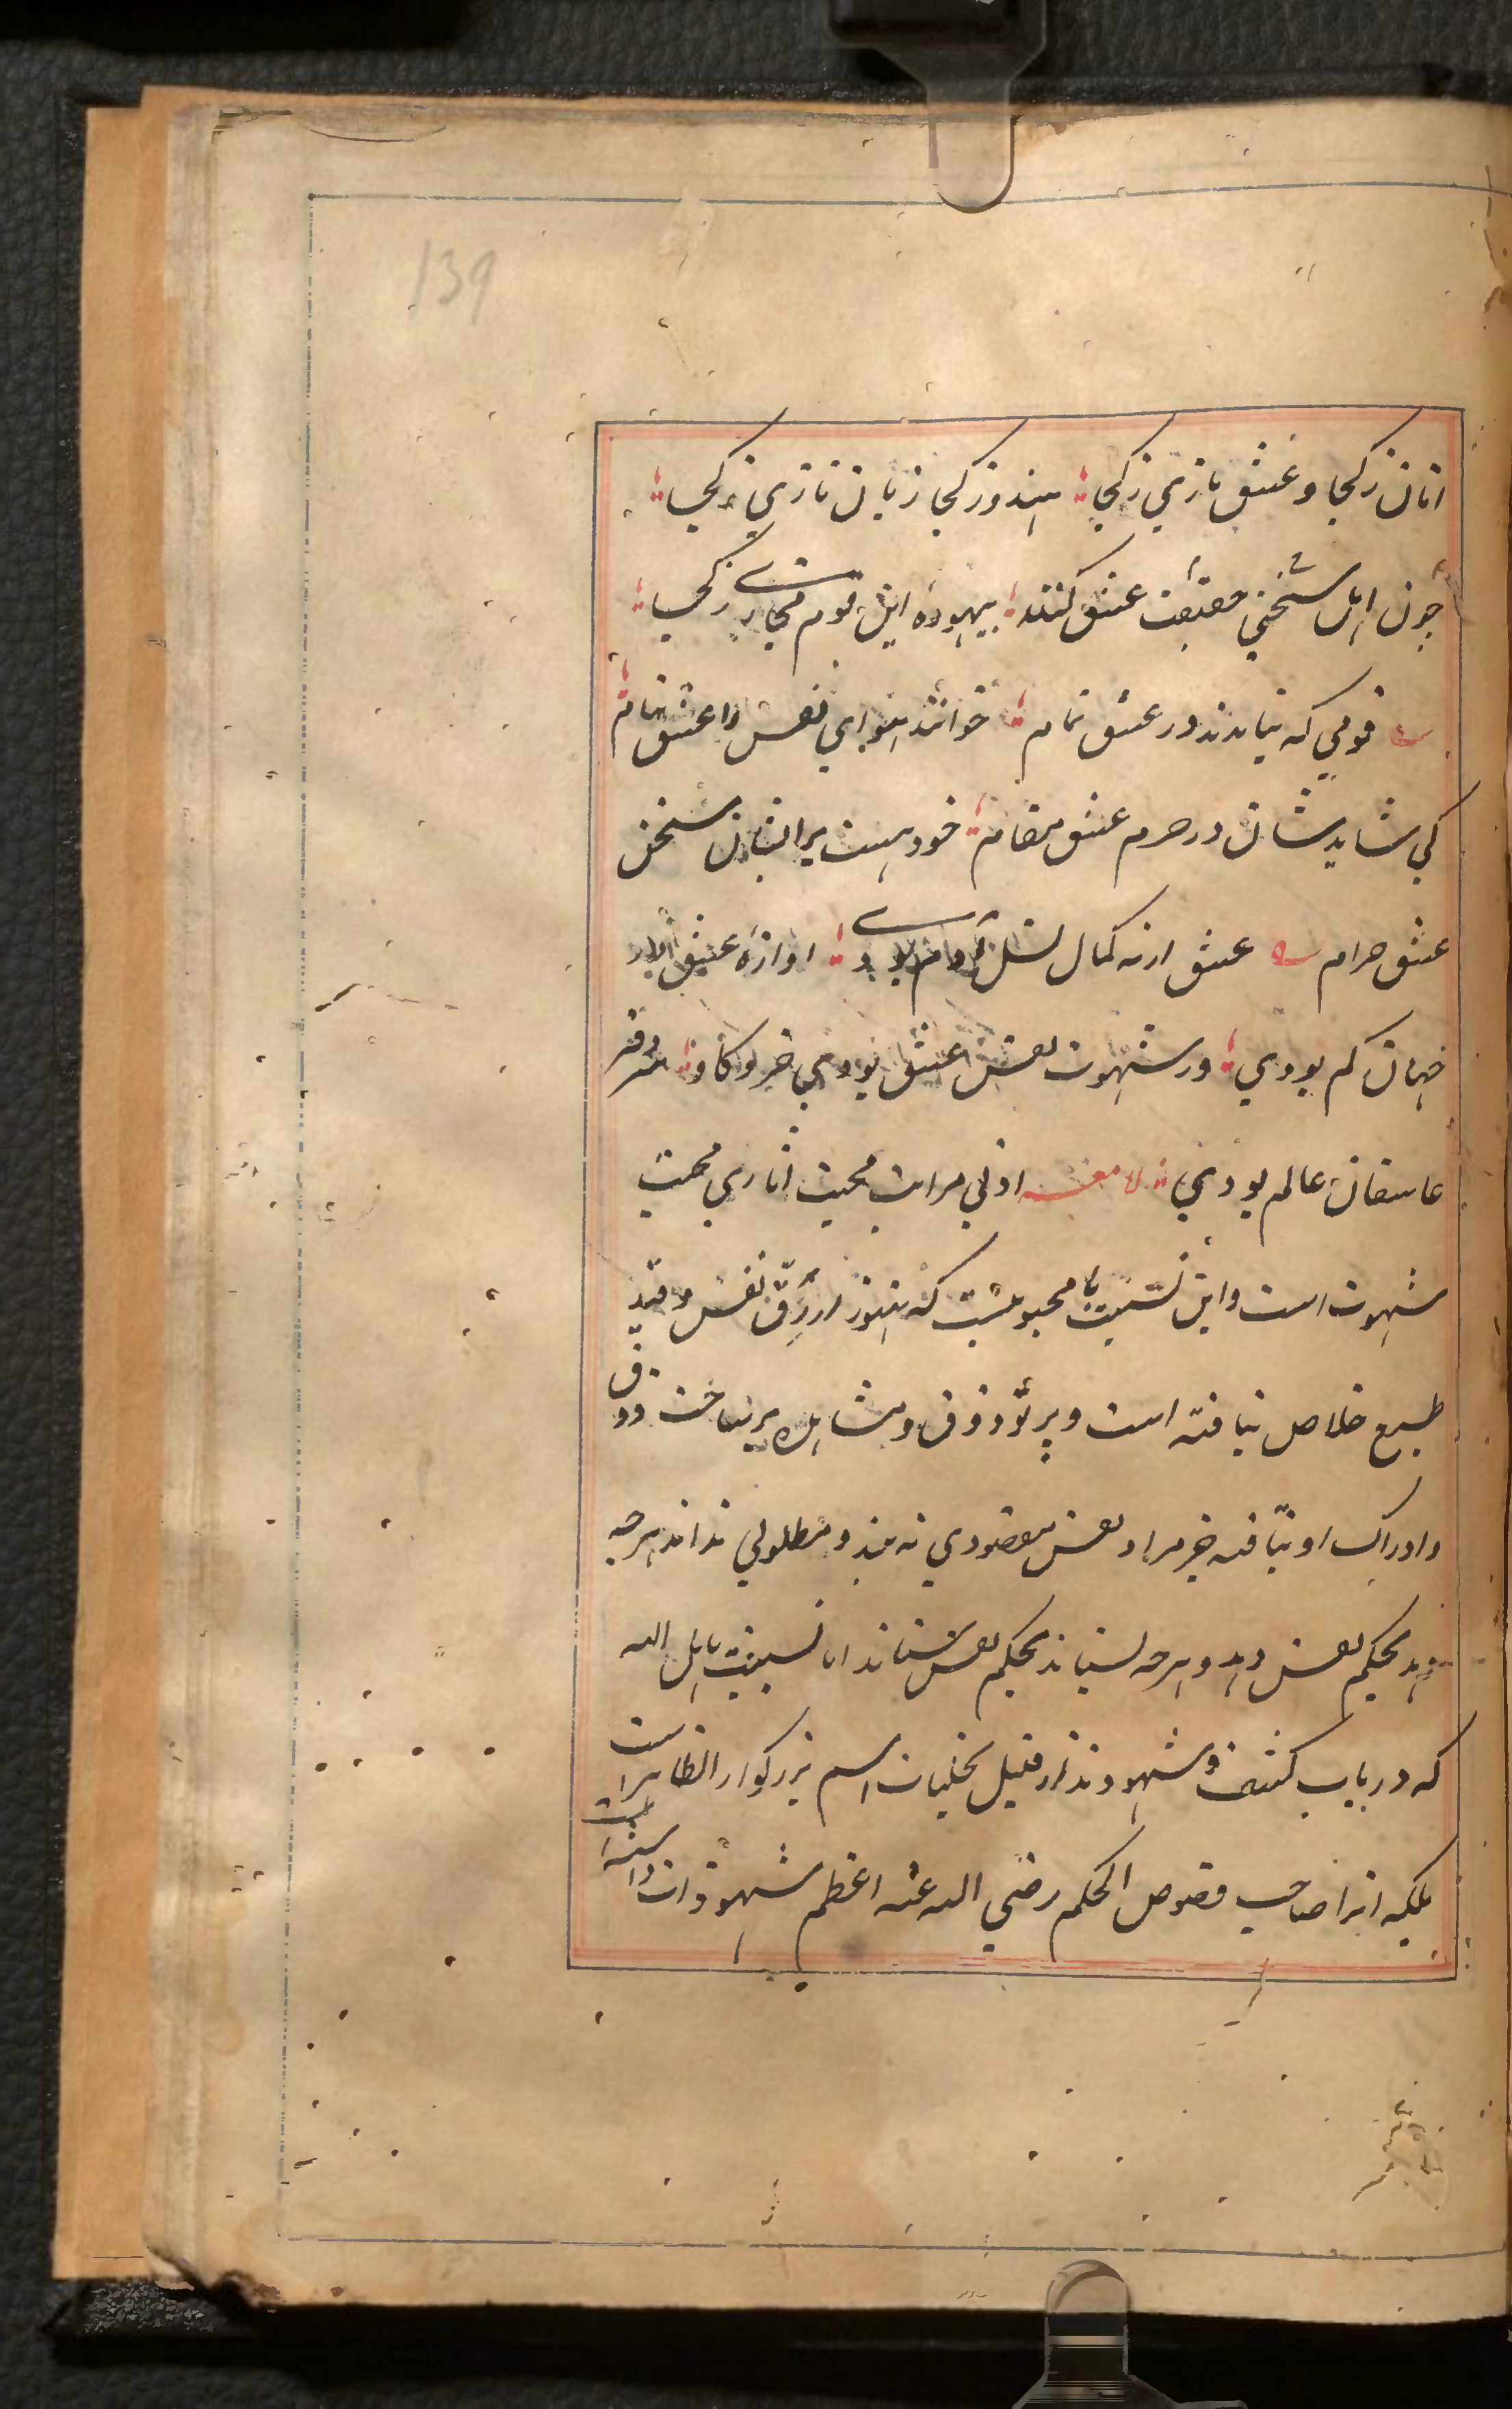 139
انان ز کجا و عشق بازي ز کجا هندو ز کجا زبان تازي ز کجا
چون اهل سخن حقیقت عشق کنند بیهوده این قوم مجازي ز کجا
قومي که نیامدند در عشق تمام خوانند هواي نفس را عشق بنام
کي شاید شان در حرم عشق مقام خود هست بر ایشان سخن
عشق حرام عشق ارنه کمال نسل آدم بودي اوازه عشق در
جهان کم بودي ور شهوت نفس عشق بودي خر و کاو سر دفتر
عاشقان عالم بودي لامعه ادني مراتب محبت اثاري محبت
شهوت است و این نسبت با محبوبیست که هنوز از رق نفس و قید
طبع خلاص نیافته است و پرتو ذوق و مشاهده بر ساخت ذوق
و ادراک او نیافته جز مراد نفس مقصودي نه بیند و مطلوبي نداند هرچه
دهد بحکم نفس دهد و هرچه ستاند بحکم نفس ستاند اما نسبت باهل الله
که در باب کشف و شهودند از قبیل تجلیات اسم بزرکوار الظاهر است
بلکه انرا صاحب فصوص الحکم رضي الله عنه اعظم شهودات